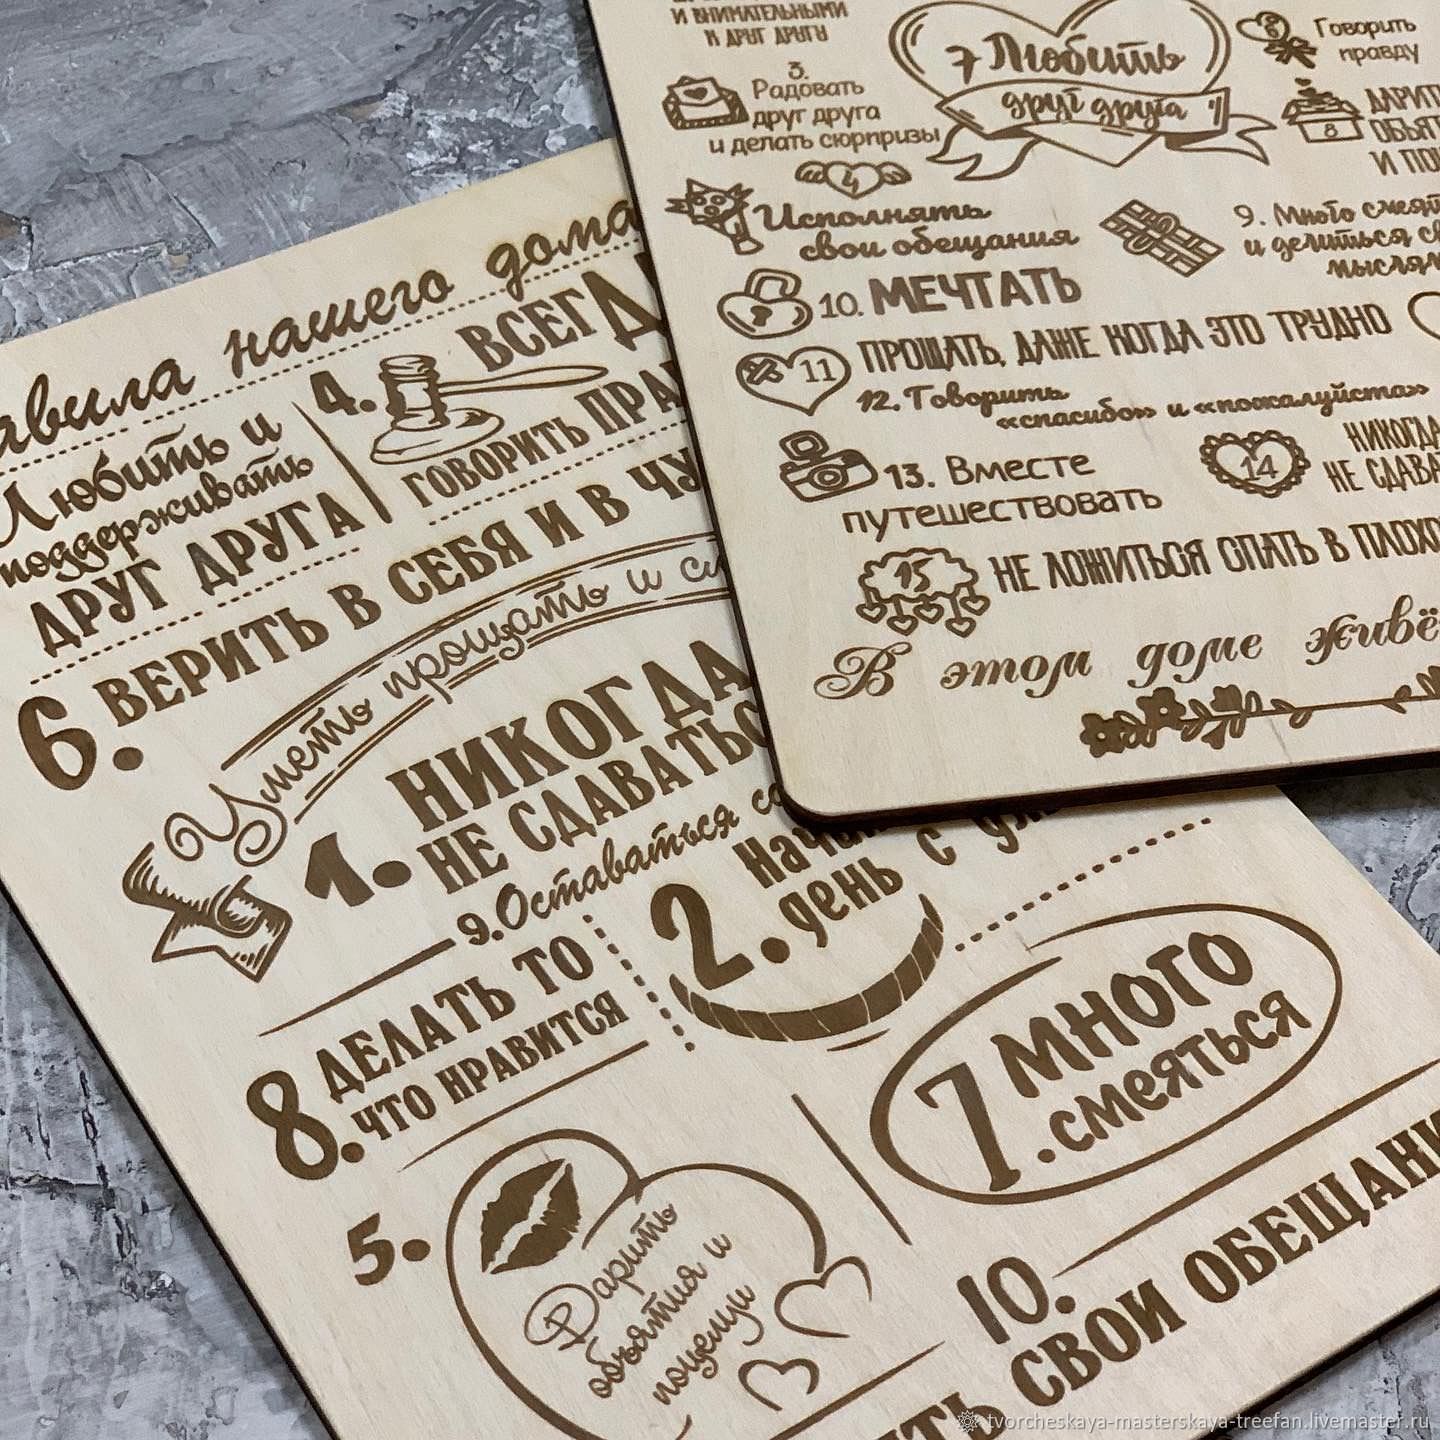 и внимательными
к друг другу
3.
Радовать
друг друга
и делать сюрпризы
7 Любить
друг друга
6
Говорить
правду
8
И
4
Исполнять
свои обещания
9. Много
и делиться
10. МЕЧТАТЬ
11 ПРОЩАТЬ, ДАЖЕ КОГДА ЭТО ТРУДНО
12. Говорить
«спасибо» и «пожалуйста»
13. Вместе
путешествовать
14
НИКОГДА
НЕ
15 НЕ ЛОЖИТЬСЯ СПАТЬ В
В этом доме
нашего дома
Любить и
поддерживать
ДРУГ ДРУГА
4.
ГОВОРИТЬ
6. ВЕРИТЬ В СЕБЯ И В
Уметь прощать и
1. НИКОГДА
НЕ
9. Оставаться
2.
день с
8. ДЕЛАТЬ ТО
ЧТО НРАВИТСЯ
7. МНОГО
смеяться
5.
Дарить
объятия и
поцелуи
10.
СВОИ
tvorcheskaya-masterskaya-treefan.livemaster.ru